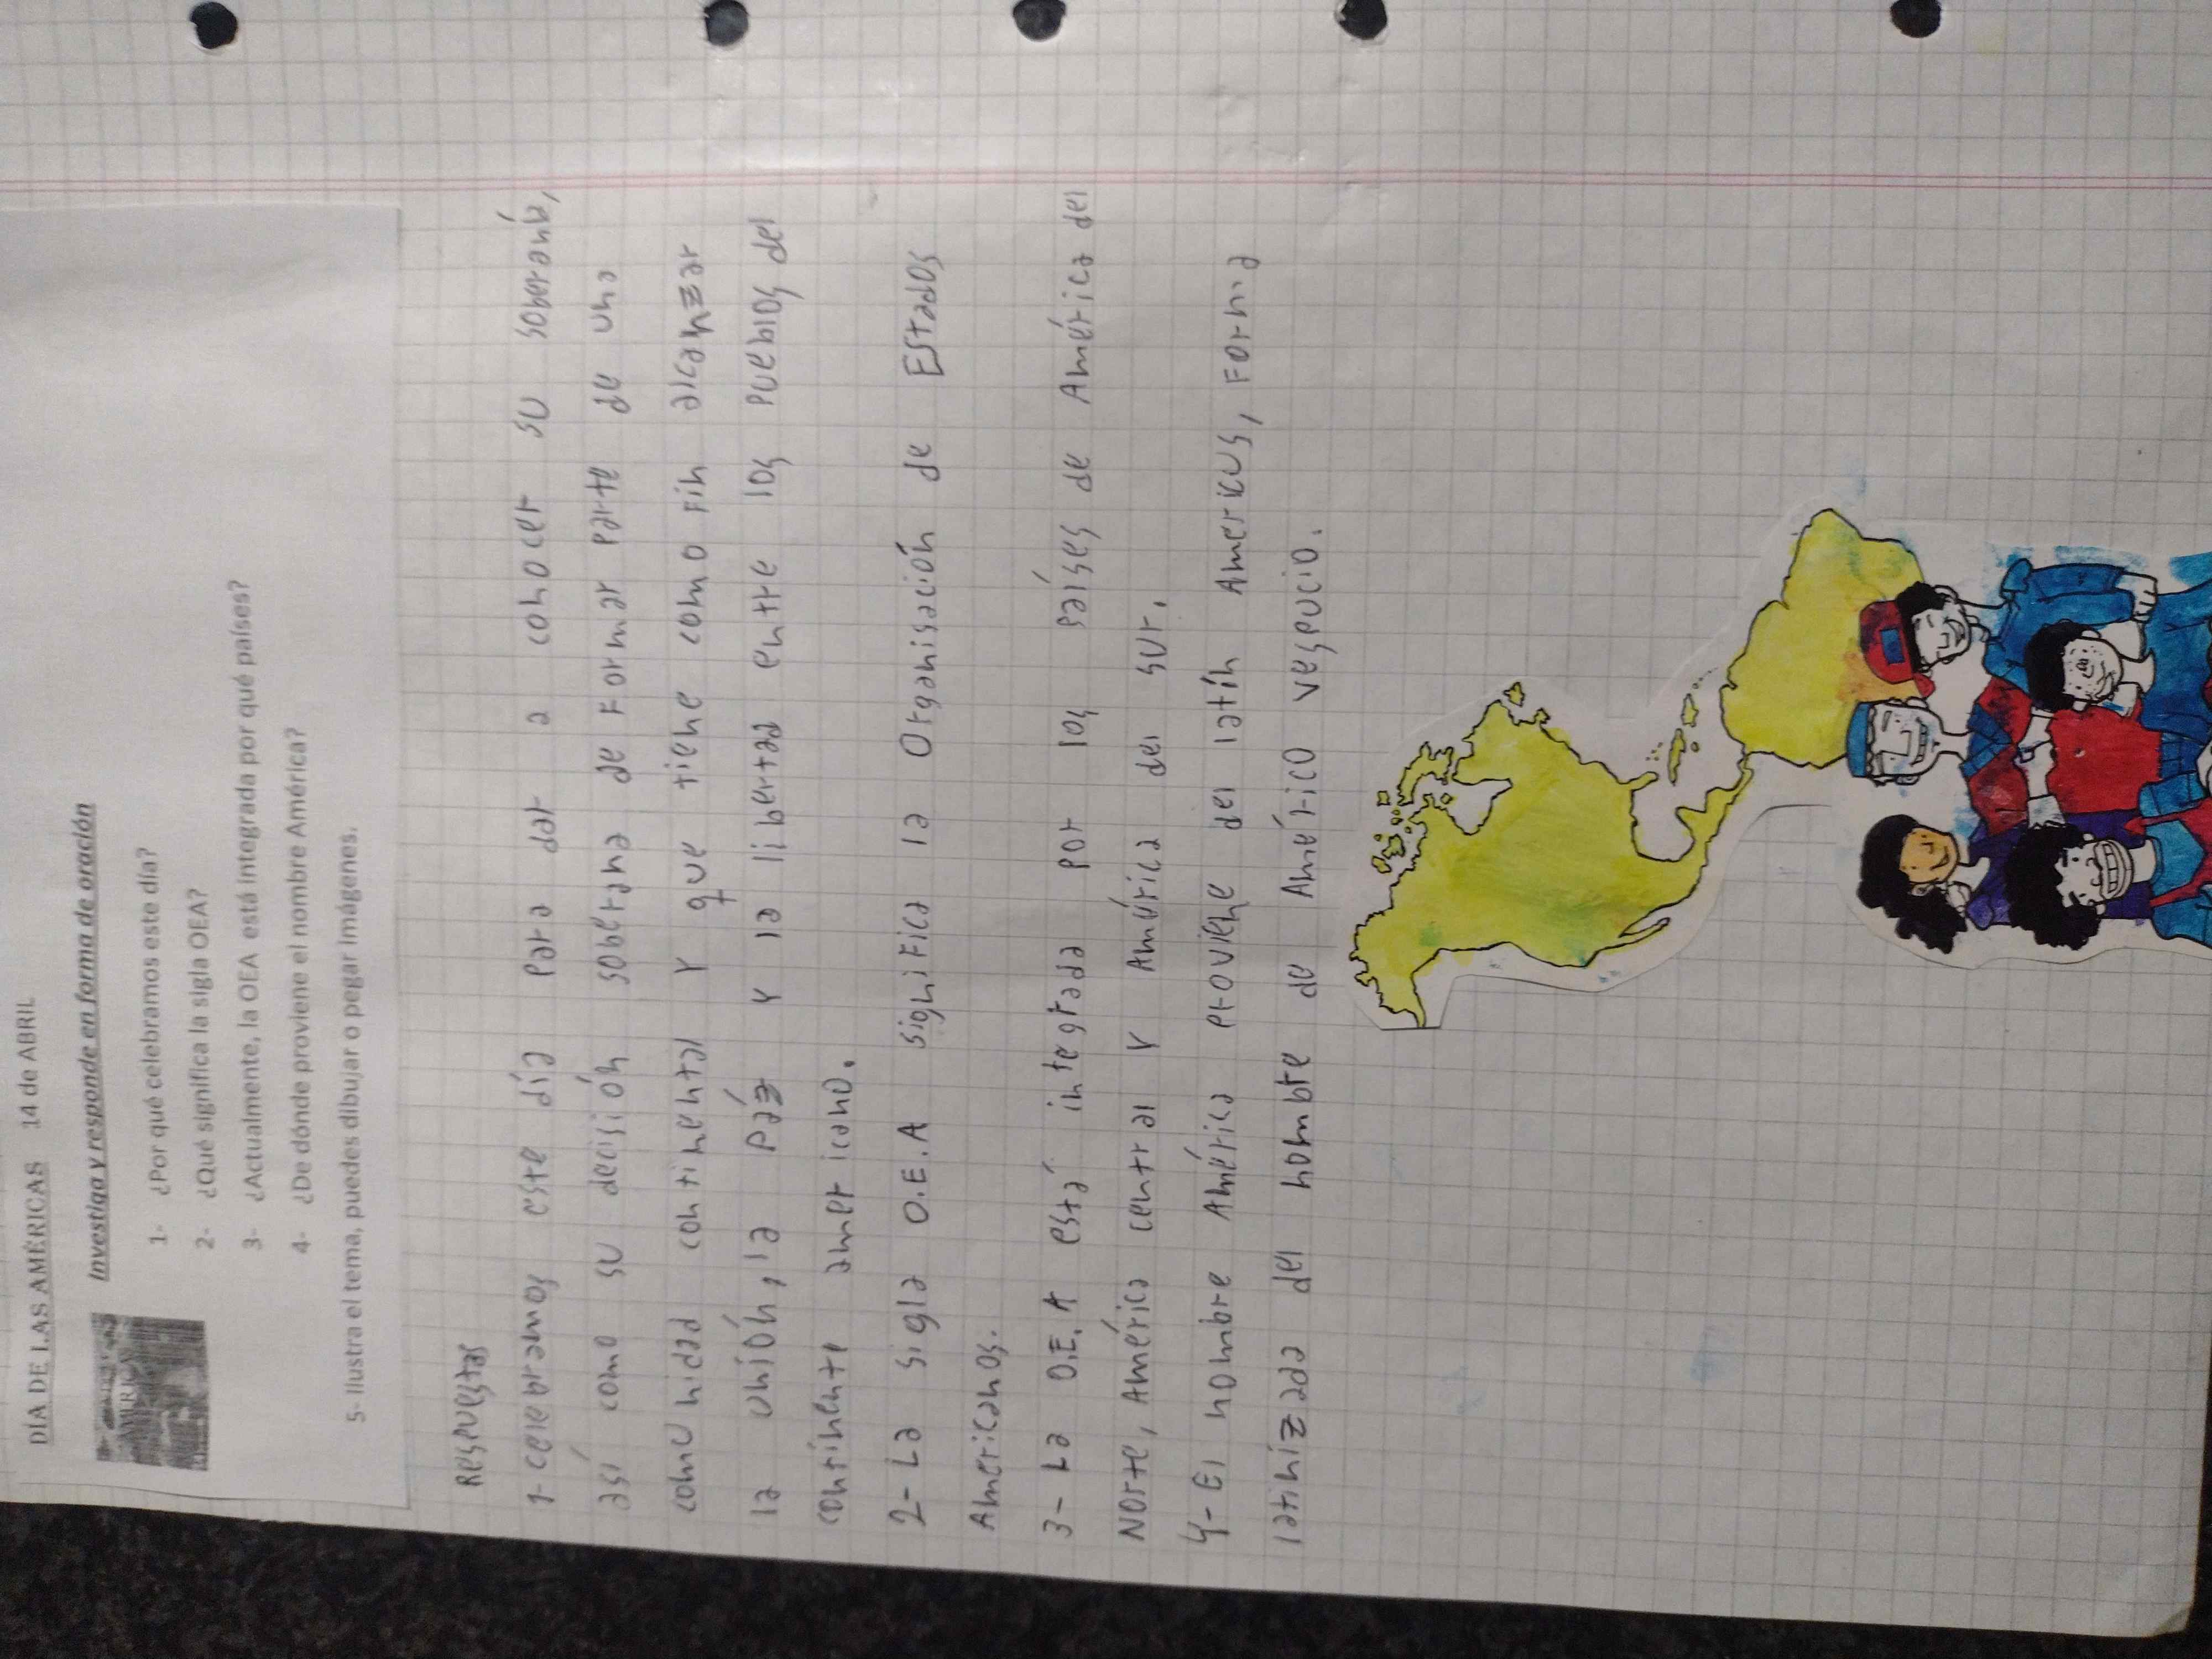 DÍA DE LAS AMÉRICAS 14 de ABRIL
Investiga y responde en forma de oración
1- ¿Por qué celebramos este día?
2- ¿Qué significa la sigla OEA?
3- ¿Actualmente, la OEA está integrada por qué países?
4- ¿De dónde proviene el nombre América?
5- Ilustra el tema, puedes dibujar o pegar imágenes.
Respuestas
1- celebramos este día para dar a conocer su soberaná,
así como su decisión soberana de Formar parte de una
comunidad continental Y que tiene como Fin alcanzar
la unión, la Páz Y la libertad entre los pueblos del
continente americano.
2- La sigla O.E.A significa la Organisación de Estados
Americanos.
3- La O.E.A está integrada por los países de América del
Norte, América central Y América del sur.
4- El nombre América proviene del latín Americus, Forma
latinizada del nombre de Américo vespucio.